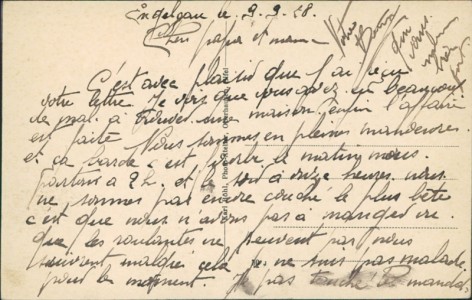 Engelgau le 9.9.58.
Cher papa et maman
C'est avec plaisir que j'ai reçu
votre lettre. Je vois que vous avez eu beaucoup
de mal à trouver une maison enfin l'affaire
est faite Nous sommes en pleines manœuvres
et ça barde c'est le matin nous
partons à 2 h. et le soir à onze heures nous
ne sommes pas encore couché le plus bête
c'est que nous n'avons pas à manger vu
que les roulantes ne peuvent pas nous
suivent malgré cela je ne suis pas malade
pour le moment. Je pas touché le mandat
Votre